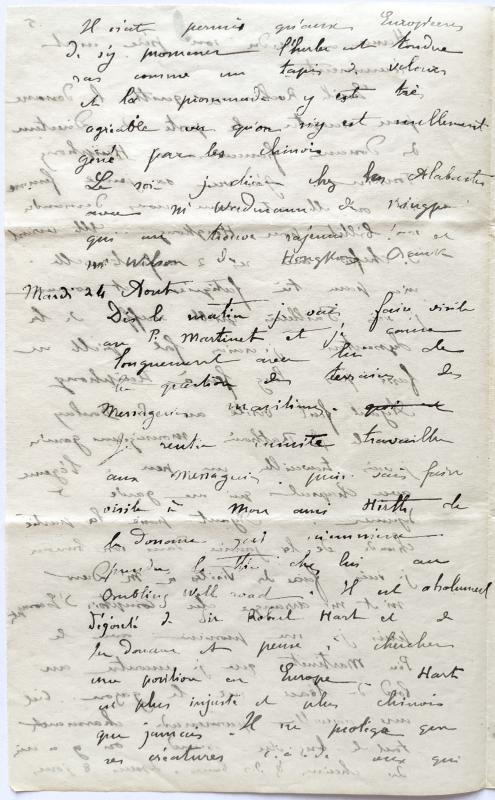 Il n'est permis qu'aux Européens
de s'y promener l'herbe est tondue
ras comme un tapis de velours
et la promenade y est très
agréable vu qu'on n'y est nullement
gêné par les chinois
Le soir je dîne chez les Alabaster
avec M Weidmann de
qui me trouve rajeuni !... et
Mr Wilson de Hongkong Bank
Mardi 24 Août
Dès le matin je vais faire visite
au P. Martinet et j'y cause
longuement avec lui de
la question des terrains des
Messageries maritimes.
je rentre ensuite travailler
aux Messageries puis vais faire
visite à Mon ami Hirth de
la douane qui m'emmène
prendre le thé chez lui au
Bubbling Well road. Il est absolument
dégoûté de Sir Robert Hart et de
la douane et pense à chercher
une position en Europe - Hart
est plus injuste et plus chinois
que jamais. Il ne protège que
ses créatures c.à.d. ceux qui